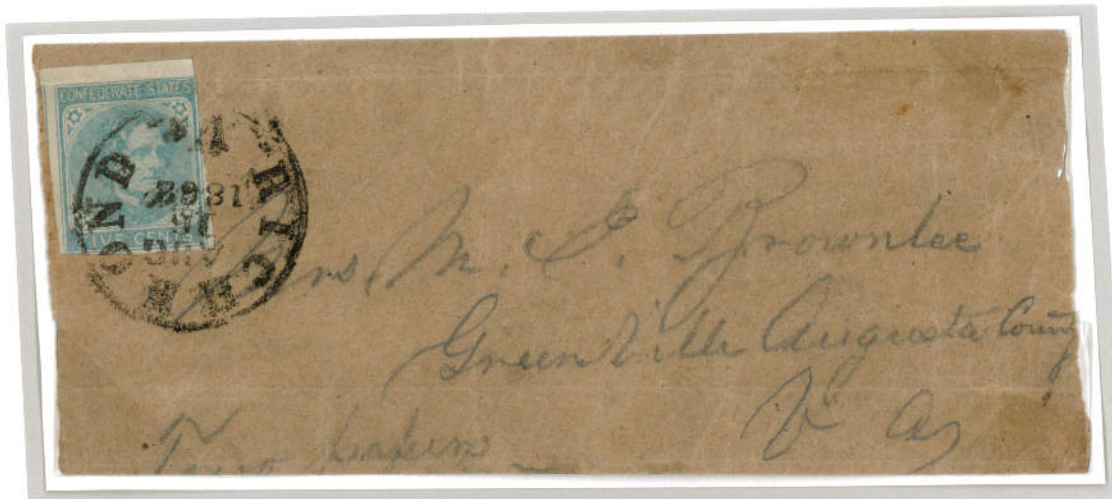 CONFEDERATE STATES
FIVE CENTS
RICHMOND Va.
AUG
1862
Mrs. M. E. Brownlee
Greenville Augusta County
Va
Two papers